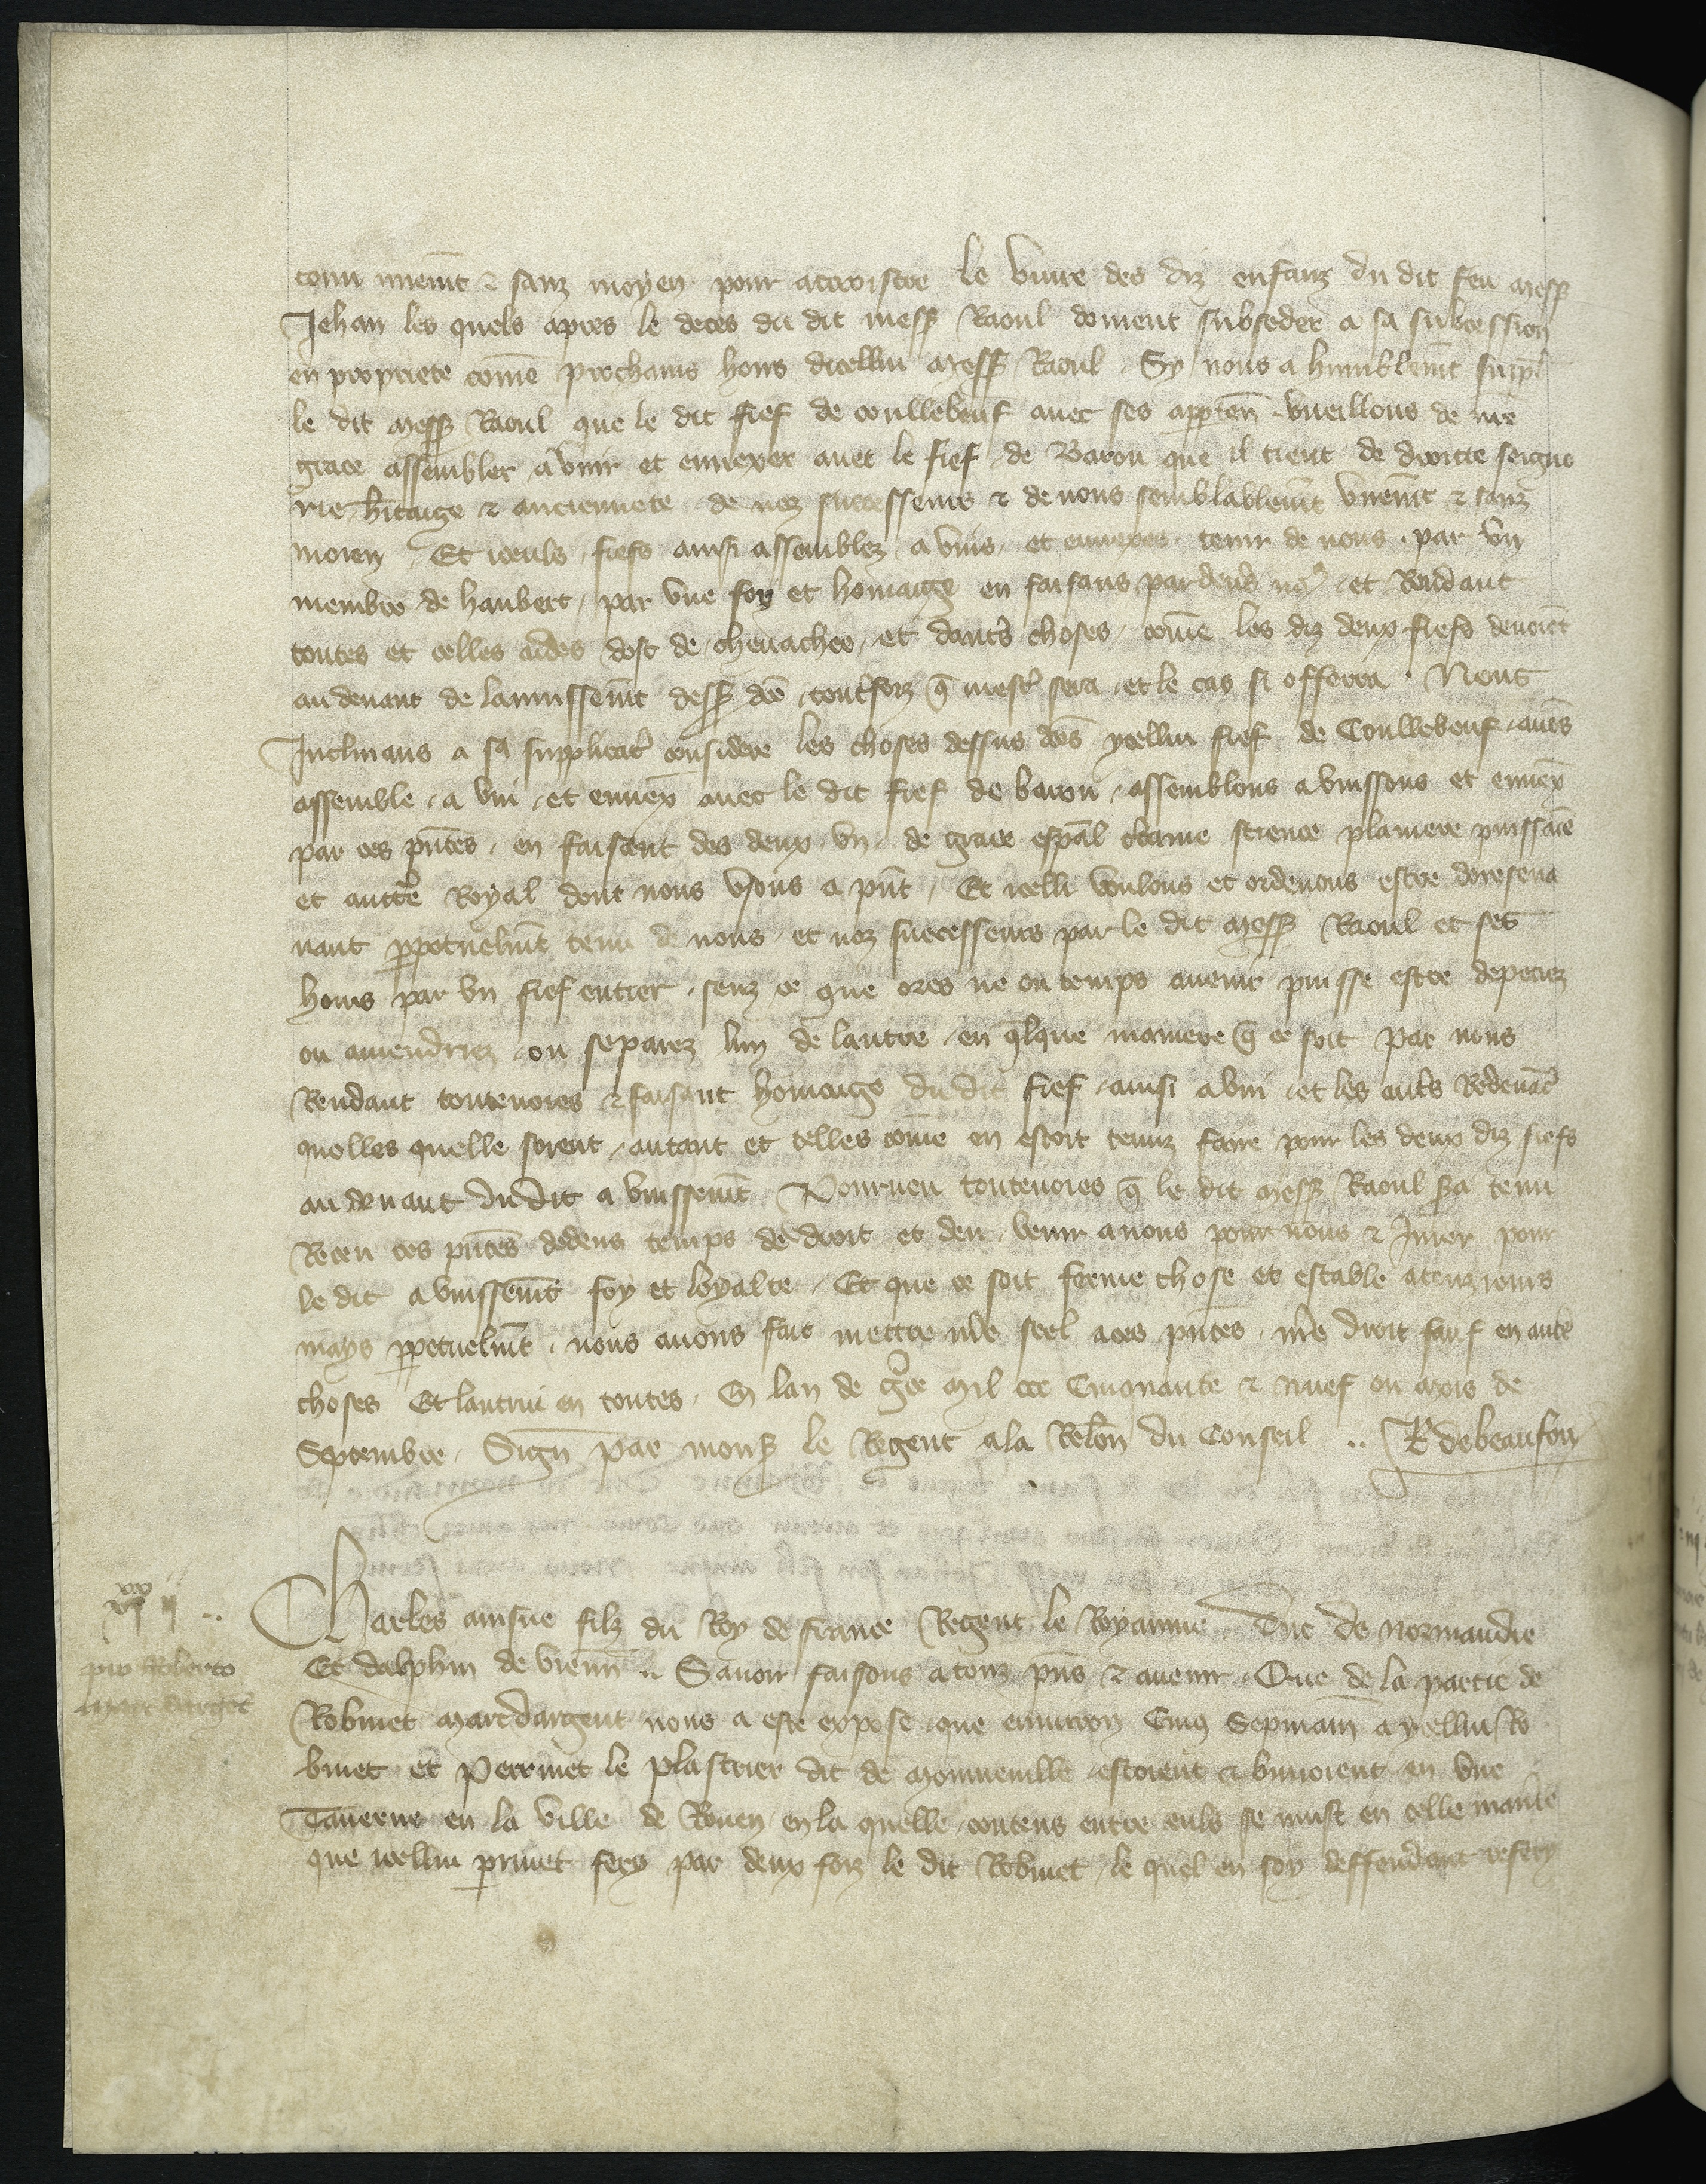 tenu nuement & sanz moyen pour accroistre le vivre des diz enfans du dit feu mess
Jehan les quels apres le deces du dit mess Raoul doivent subceder a sa subcession
en propriete come prochains hoirs dicellui mess Raoul Sy nous a humblemt suppl
le dit mess Raoul que le dit fief de coullebeuf avec ses apparten vueillons de nre
grace assembler a unir et ennexer avec le fief de Baron que il tient de droitte seigno
rie hitaige & anciennete de noz successeurs & de nous semblablemt unemt & sanz
moien Et iceuls fiefs ainsi assemblez a unis et ennexes tenir de nous par un
membre de haubert par une foy et homaige en faisans par devs no et Rendant
toutes et telles aides dost de chevachee et dautrs choses come les diz deux fiefs devoient
au devant de launissemt dess dce toutesfoiz q mestr sera et le cas si offerra Nous
Inclinans a sa supplicat considere les choses dessus dces ycellui fief de Coullebeuf avons
assemble a uni et ennex avec le dit fief de baron assemblons a unissons et ennex
par ces pntes en faisant des deux un de grace espal ctaine science plainiere puissace
et auctte Royal dont nous usons a pnt Et icelli voulons et ordenons estre doresena
vant ppetuelmt tenu de nous et noz successeurs par le dit mess Raoul et ses
hoirs par un fief entier senz ce que ores ne ou temps avenir puisse estre depeciez
ou amendriez ou separez lun de lautre en qlque maniere q ce soit par nous
Rendant toutevoies & faisant homaige du dit fief ainsi a uni et les autrs Redevac
quelles quelle soient autant et telles come en estoit tenuz faire pour les deux diz fiefs
au devant du dit a unissemt Pourveu toutevoies q le dit mess Raoul sa tenu
Receu ces pntes dedens temps de droit et deu venir a nous pour nous & Jurer pour
le dit a unissemt foy et loyalte Et que ce soit ferme chose et estable a touzjours
mays ppetuelmt nous avons fait mettre nre seel a ces pntes nre droit sauf en autrs
choses Et lautrui en toutes En lan de gce mil ccc Cinquante & nuef ou mois de
Septembre Sign par mons le Regent a la Relon du Conseil .. R debeaufou
Charles ainsne filz du Roy de france Regent le Royaume Duc de normandie
Et dalphin de vienn Savoir faisons a touz pns & avenir Que de la partie de
Robinet marcdargent nous a este expose que environ Cinq Sepmain a ycellui Ro
binet et Perrinet le plastrier dit de estoient & buvoient en une
Taverne en la ville de Rouen en la quelle contens entre euls se must en telle maniere
que icellui prinet fery par deux foiz le dit Robinet le quel en soy deffendant refery
pro Roberto
marc dargent